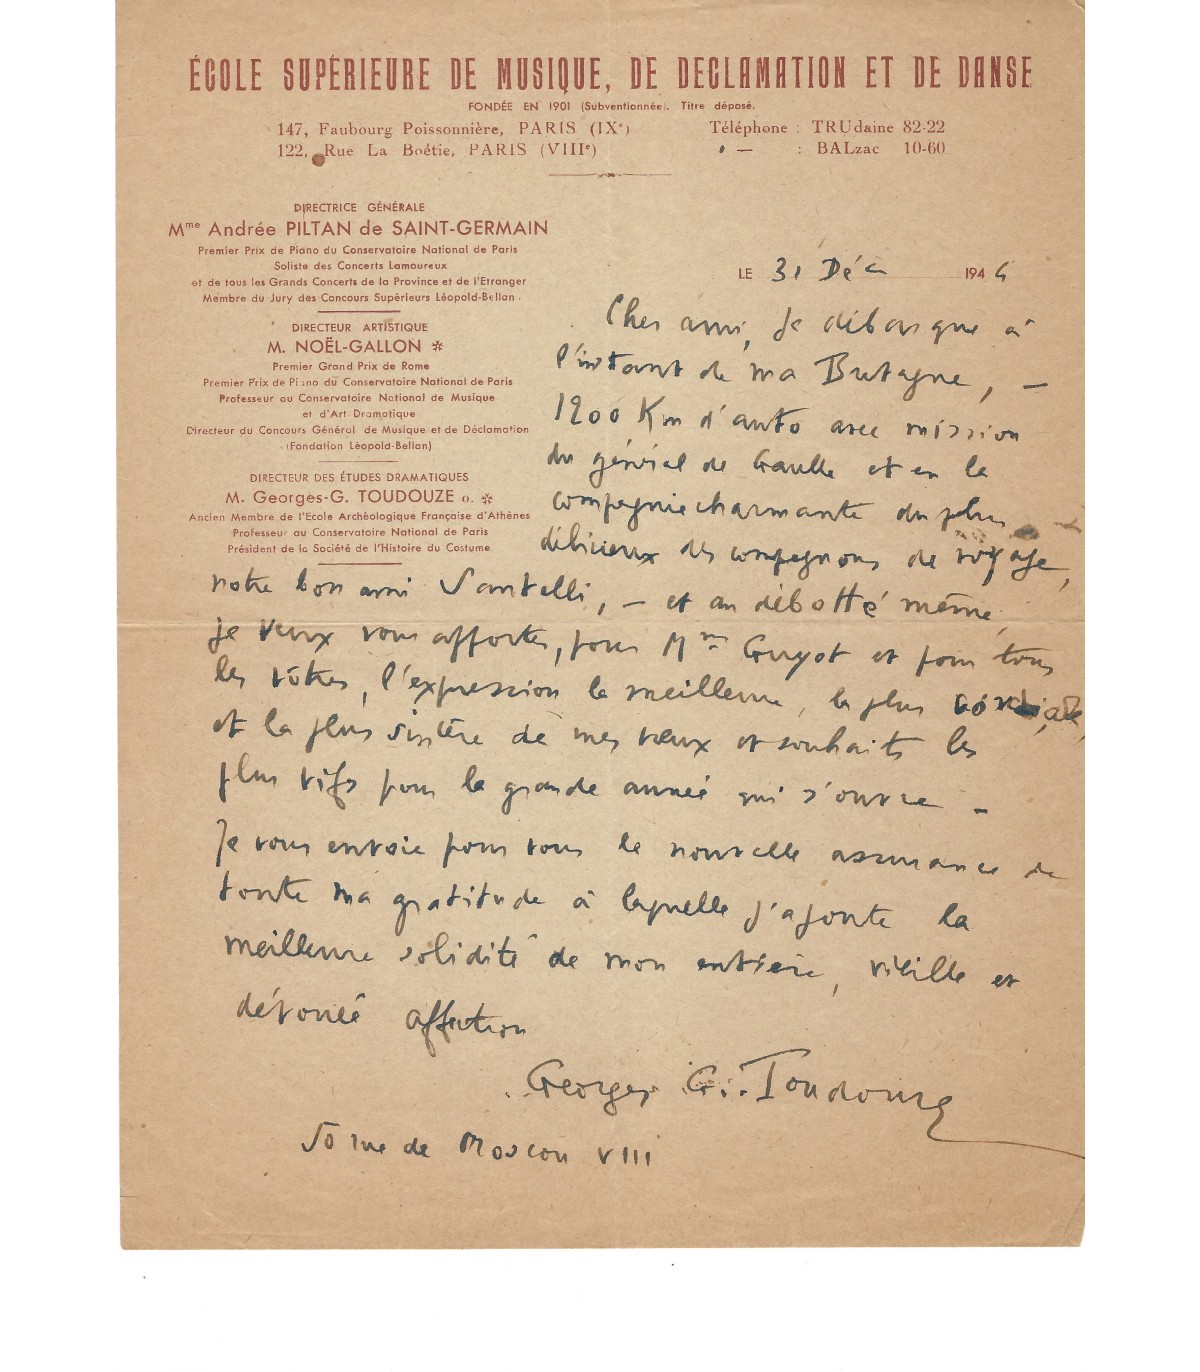 ÉCOLE SUPÉRIEURE DE MUSIQUE, DE DECLAMATION ET DE DANSE
FONDÉE EN 1901 (Subventionnée). Titre déposé.
147, Faubourg Poissonnière, PARIS (IXe)
122, Rue La Boétie, PARIS (VIIIe)
Téléphone : TRUdaine 82-22
— : BALzac 10-60
DIRECTRICE GÉNÉRALE
Mme Andrée PILTAN de SAINT-GERMAIN
Premier Prix de Piano du Conservatoire National de Paris
Soliste des Concerts Lamoureux
et de tous les Grands Concerts de la Province et de l'Etranger
Membre du Jury des Concours Supérieurs Léopold-Bellan.
DIRECTEUR ARTISTIQUE
M. NOËL-GALLON ✻
Premier Grand Prix de Rome
Premier Prix de Piano du Conservatoire National de Paris
Professeur au Conservatoire National de Musique
et d'Art Dramatique
Directeur du Concours Général de Musique et de Déclamation
(Fondation Léopold-Bellan)
DIRECTEUR DES ÉTUDES DRAMATIQUES
M. Georges-G. TOUDOUZE O. ✻
Ancien Membre de l'Ecole Archéologique Française d'Athènes
Professeur au Conservatoire National de Paris
Président de la Société de l'Histoire du Costume
LE 31 Déc 194
Cher ami, je débarque à
l'instant de ma Bretagne, —
1200 Km d'auto avec mission
du général de Gaulle et en la
compagnie charmante du plus
délicieux des compagnons de voyage,
notre bon ami Santelli, — et au débotté même,
je veux vous apporter, pour Mme Guyot et pour tous
les vôtres, l'expression la meilleure, la plus cordiale,
et la plus sincère de mes vœux et souhaits les
plus vifs pour la grande année qui s'ouvre —
Je vous envoie pour vous la nouvelle assurance de
toute ma gratitude à laquelle j'ajoute la
meilleure solidité de mon entière, vieille et
dévouée affection
Georges G. Toudouze
50 rue de Moscou VIII